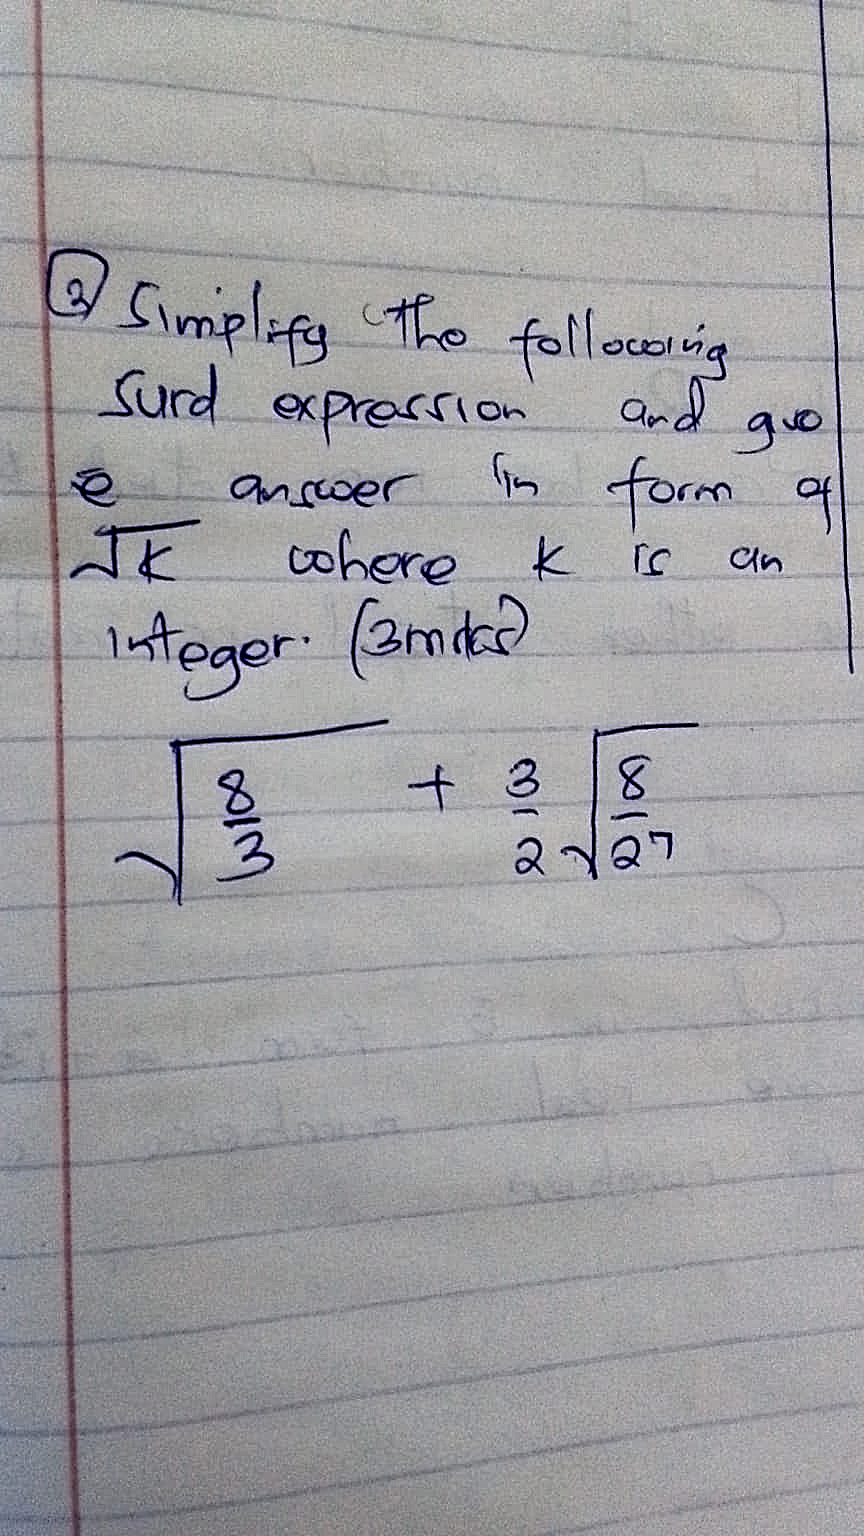 2 Simplify the following
surd expression and giv
e answer in form of
√k where k is an
integer. (3mks)
√(8/3) + 3/2 √(8/27)